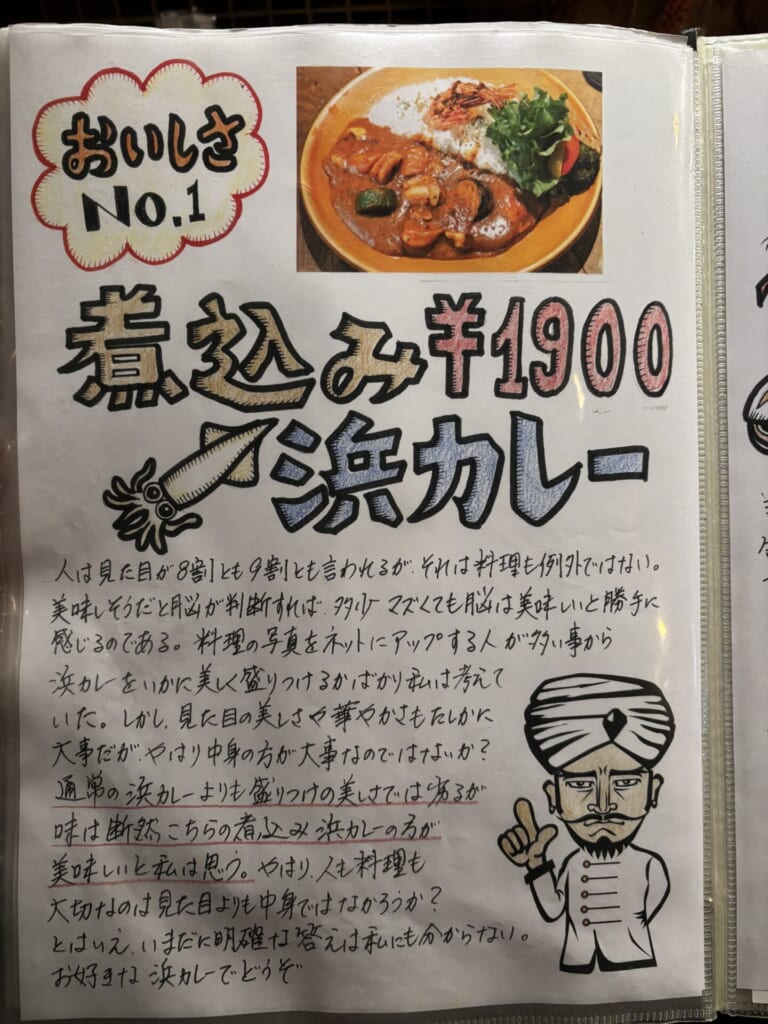 おいしさ
No.1
煮込み¥1900
浜カレー
人は見た目が8割とも9割とも言われるが、それは料理も例外ではない。
美味しそうだと脳が判断すれば、多少マズくても脳は美味しいと勝手に
感じるのである。料理の写真をネットにアップする人が多い事から
浜カレーをいかに美しく盛りつけるかばかり私は考えて
いた。しかし、見た目の美しさや華やかさもたしかに
大事だが、やはり中身の方が大事なのではないか?
通常の浜カレーよりも盛りつけの美しさでは劣るが
味は断然、こちらの煮込み浜カレーの方が
美味しいと私は思う。やはり、人も料理も
大切なのは見た目よりも中身ではなかろうか?
とはいえ、いまだに明確な答えは私にも分からない。
お好きな浜カレーでどうぞ